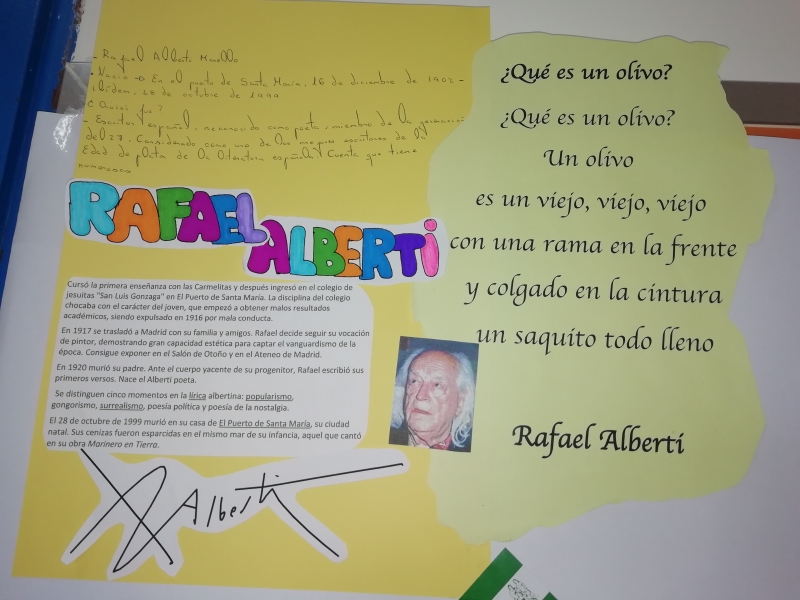 - Rafael Alberti Merello
- Nació → En el puerto de Santa María, 16 de diciembre de 1902 -
Ibídem, 28 de octubre de 1999
¿Quién fue?
- Escritor español, reconocido como poeta, miembro de la generación
del 27. Considerado como uno de los mejores escritores de la
Edad de plata de la literatura española. Cuenta que tiene
numerosos
RAFAEL
ALBERTi
Cursó la primera enseñanza con las Carmelitas y después ingresó en el colegio de
jesuitas "San Luis Gonzaga" en El Puerto de Santa María. La disciplina del colegio
chocaba con el carácter del joven, que empezó a obtener malos resultados
académicos, siendo expulsado en 1916 por mala conducta.
En 1917 se trasladó a Madrid con su familia y amigos. Rafael decide seguir su vocación
de pintor, demostrando gran capacidad estética para captar el vanguardismo de la
época. Consigue exponer en el Salón de Otoño y en el Ateneo de Madrid.
En 1920 murió su padre. Ante el cuerpo yacente de su progenitor, Rafael escribió sus
primeros versos. Nace el Alberti poeta.
Se distinguen cinco momentos en la lírica albertina: popularismo,
gongorismo, surrealismo, poesía política y poesía de la nostalgia.
El 28 de octubre de 1999 murió en su casa de El Puerto de Santa María, su ciudad
natal. Sus cenizas fueron esparcidas en el mismo mar de su infancia, aquel que cantó
en su obra Marinero en Tierra.
Alberti
¿Qué es un olivo?
¿Qué es un olivo?
Un olivo
es un viejo, viejo, viejo
con una rama en la frente
y colgado en la cintura
un saquito todo lleno
Rafael Alberti